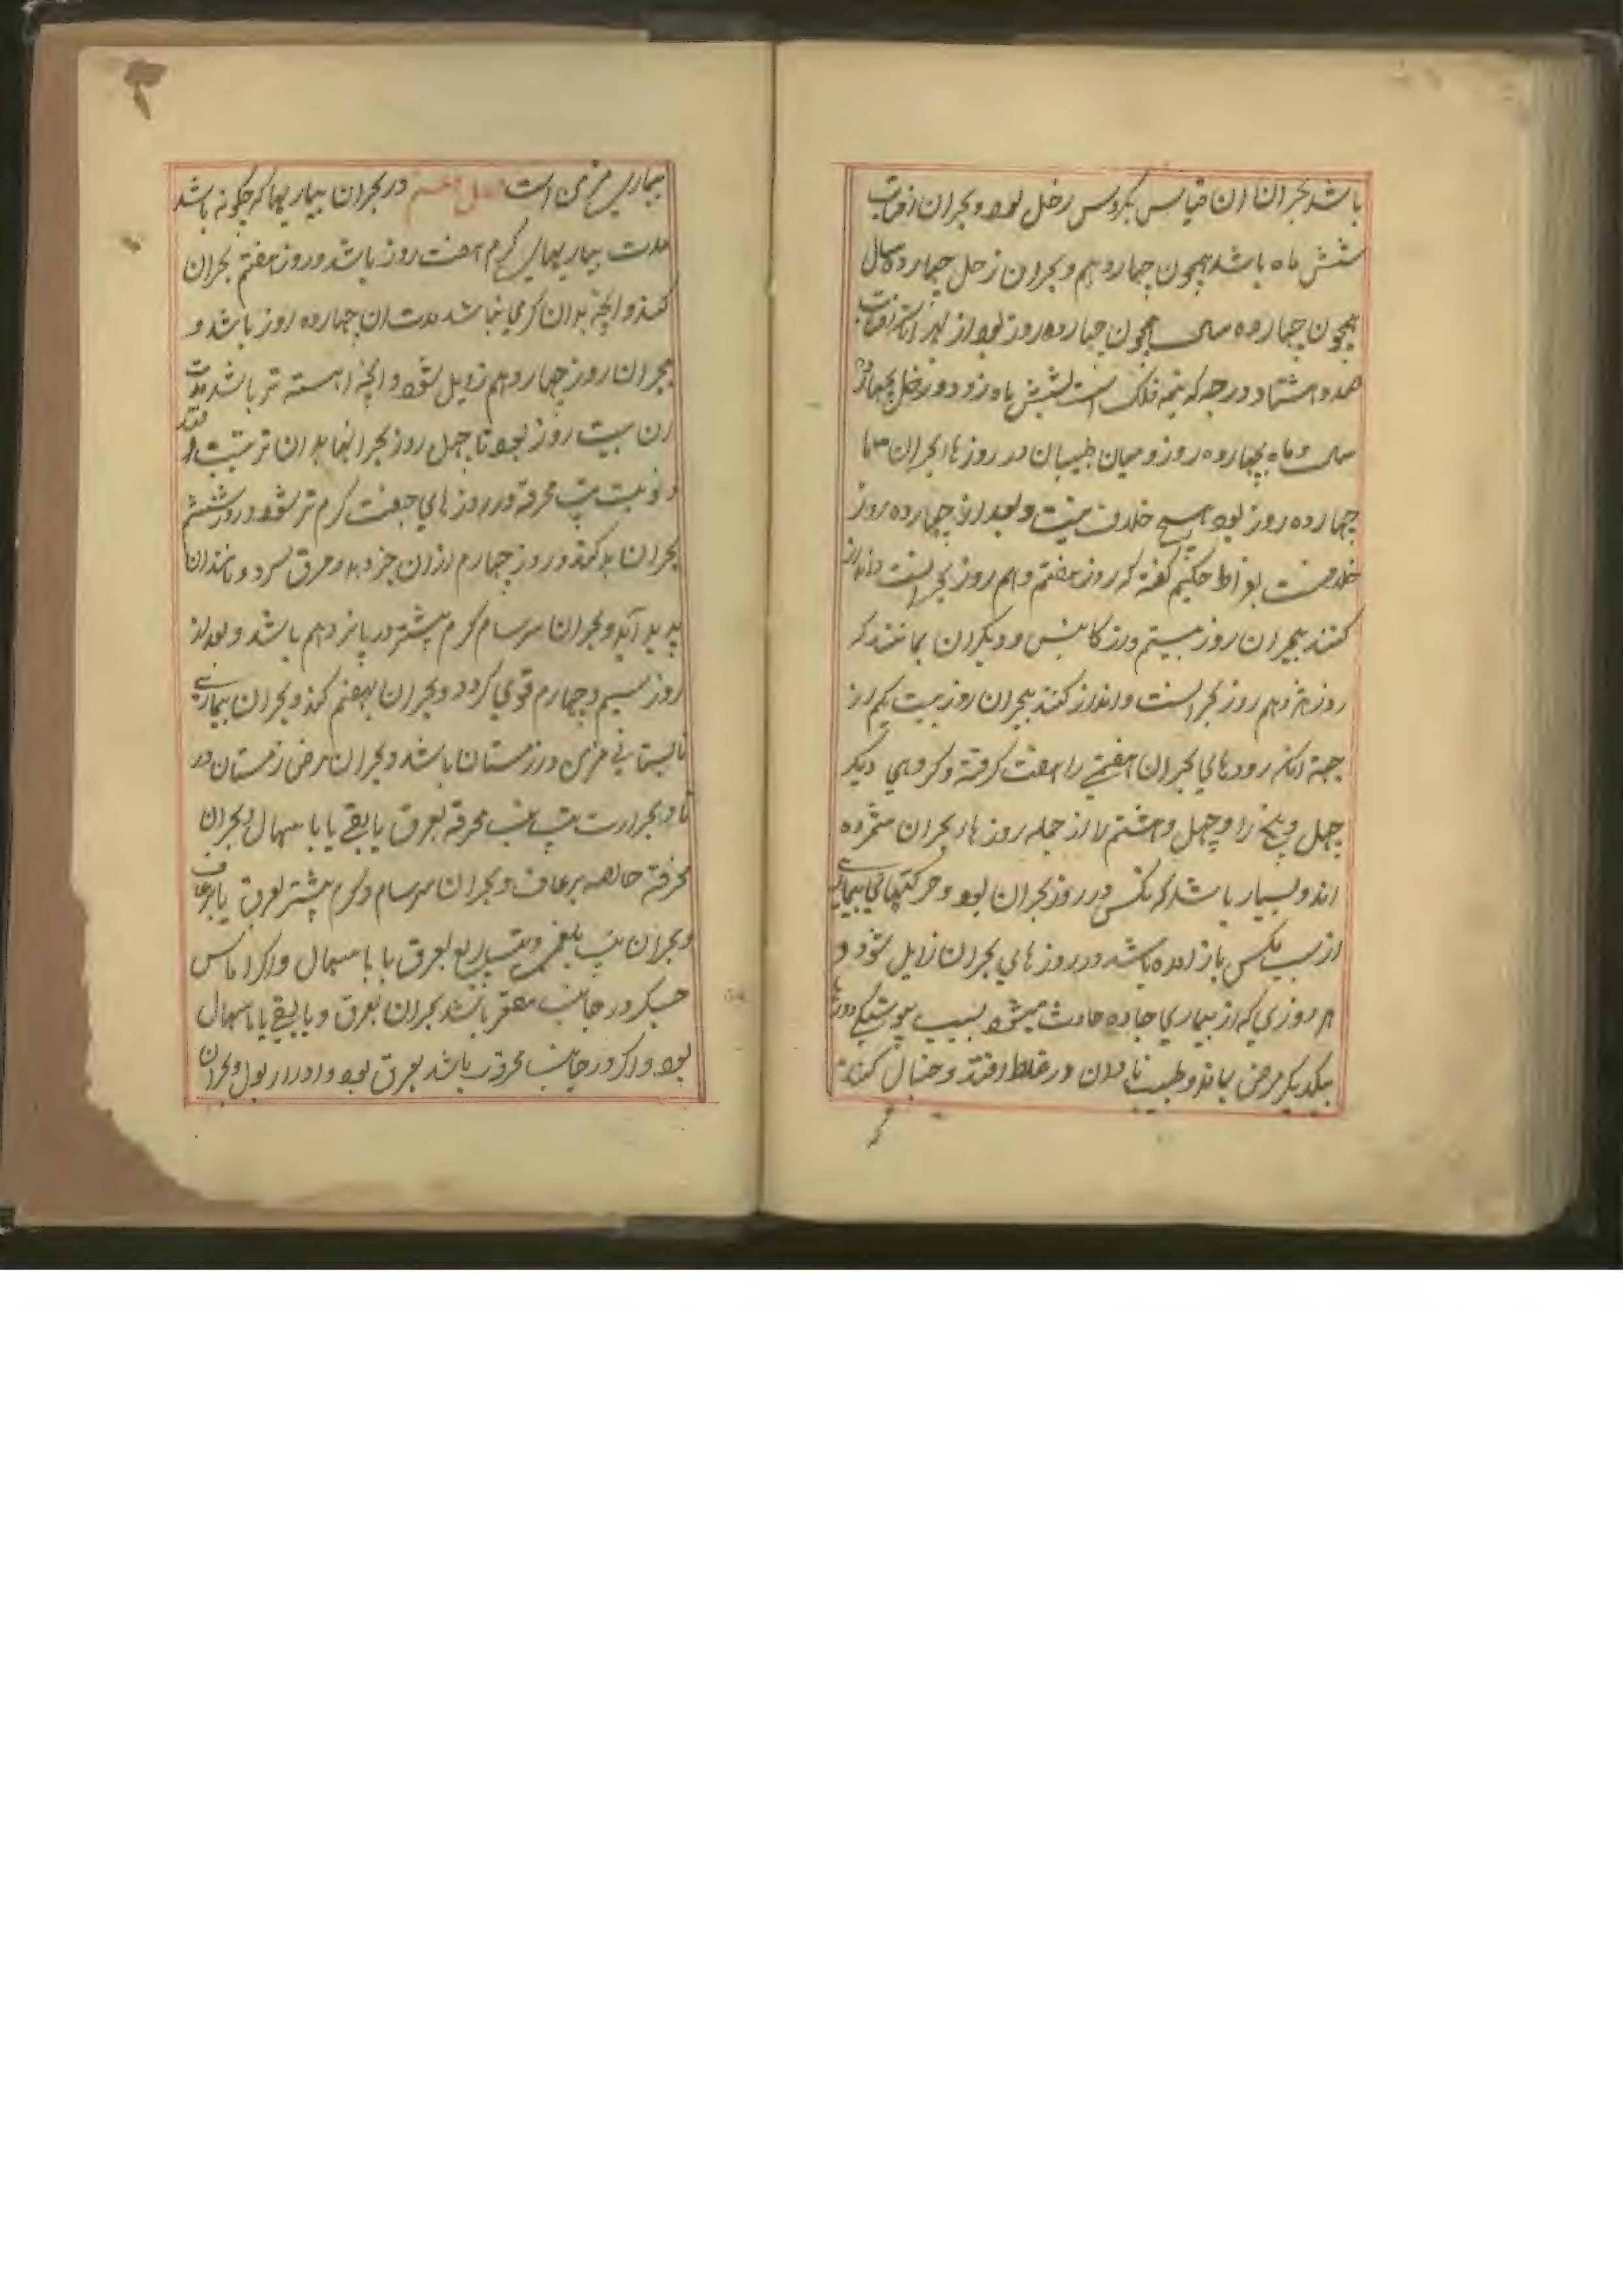 باشد بحران ان قیاس بکروس زحل بود و بحران افتاب
شش ماه باشد همچون چهاردهم و بحران زحل چهارده سال
همچون چهارده سالی همچون چهارده روز بود از بهر انکه افتاب
صد و هشتاد درجه که نیمه فلک است بشش ماه رود و زحل بچهارده
سال و ماه بچهارده روز و میان طبیبان در روزهاء بحران تا
چهارده روز بود هیچ خلاف نیست و بعد از چهارده روز
خلافست بقراط حکیم گفته که روز هفتم دهم روز بحرانست و انذار
کنند ببحران روز بیستم و دیکران بمانند که
روز هژدهم روز بحرانست و انذار کنند ببحران روز بیست یکم از
جهة انکه روزهای بحران هفتم را هفت کرفته و کروهی دیکر
چهل و پنج را و چهل و هشتم را از جمله روزهاء بحران شمرده
اند و بسیار باشد که نکس در روز بحران بود و حرکتهای بیماری
از سبب نکس باز امده باشد در روزهای بحران زایل شود و
هر روزی که از بیماری حاده حادث میشود بسبب پیوستکی دورها
بیکدیکر مرض بماند و طبیب نادان در غلط افتد و خیال کند که
بیماری مزمن است در بحران بیماریها که چکونه باشد
مدت بیماریهای کرم هفت روز باشد و روز هفتم بحران
کند و انچه بدان کرمی نباشد مدت ان چهارده روز باشد و
بحران روز چهاردهم زایل شود و انچه اهسته تر باشد مدت
ان بیست روز بود تا چهل روز بحرانها بدان ترتیب افتد
و نوبت تب محرقه در روزهای جفت کرم تر شود و روز ششم
بحران بد کند و روز چهارم از ان جز و بد و عرق سرد و مانند ان
پدید آید و بحران سرسام کرم بیشتر در یازدهم باشد و بعد از
روز سیم و چهارم قوی کردد و بحران بهفتم کند و بحران بیماری
تابستانی مزمن در زمستان باشد و بحران مرض زمستان در
تا و بحرارت تب محرقه بعرق یا بقی یا با سهال و بحران
محرقه خالصه برعاف و بحران سرسام و کرم بیشتر بعرق یا برعاف
و بحران تب بلغمی و تب ربع بعرق یا با سهال و اکر اماس
جیکر در جانب مقعر باشد بحران بعرق و یا بقی یا با سهال
بود و اکر در جانب محدب باشد بعرق بود و ادرار بول و بحران